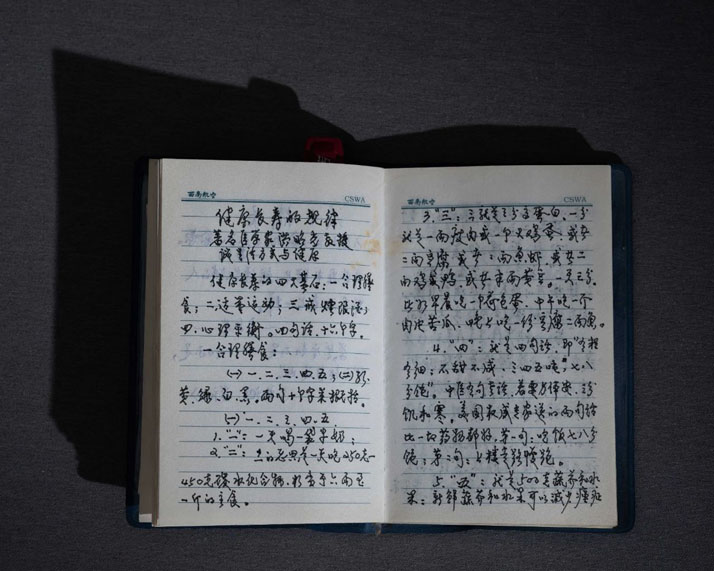 西南航空 CSWA
健康长寿的规律
著名医学家洪昭光教授
谈生活方式与健康
健康长寿的四大基石：一合理膳
食；二适量运动；三戒烟限酒；
四、心理平衡。四句话，十六个字。
一合理膳食：
㈠一、二、三、四、五；㈡红、
黄、绿、白、黑。两句十个字来概括。
㈠一、二、三、四、五
1.“一”：一天喝一袋牛奶；
2.“二”：的意思是一天吃250克—
450克碳水化合物，相当于六两至
一斤的主食。
西南航空 CSWA
3.“三”：三就是三份高蛋白，一份
就是一两瘦肉或一个大鸡蛋，或者
二两豆腐，或者二两鱼虾，或者二
两鸡或鸭，或者半两黄豆。一天三份。
比方早晨吃一个荷包蛋，中午吃一个
肉片苦瓜，晚上吃一份豆腐二两鱼。
4.“四”：就是四句话，即“有粗
有细；不甜不咸，三四五顿，七八
分饱”。中医有句老话，若要身体安，三分
饥和寒。美国权威专家送的两句话
比一切药物都好，第一句：吃饭七八分
饱；第二句：
5.“五”：就是500克蔬菜和水
果；新鲜蔬菜和水果可以减少癌症